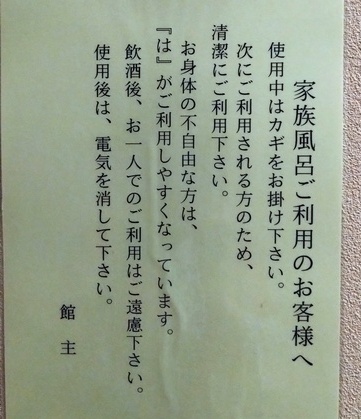 家族風呂ご利用のお客様へ
使用中はカギをお掛け下さい。
次にご利用される方のため、
清潔にご利用下さい。
お身体の不自由な方は、
『は』がご利用しやすくなっています。
飲酒後、お一人でのご利用はご遠慮下さい。
使用後は、電気を消して下さい。
館主